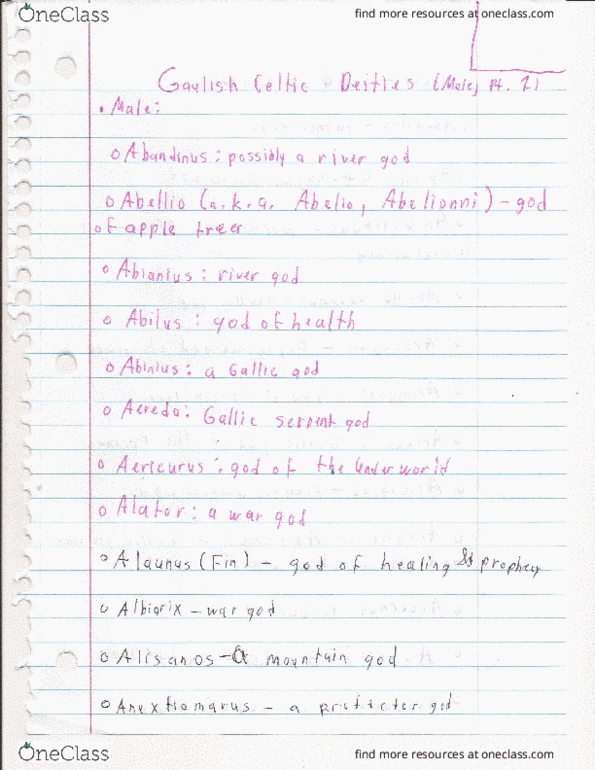 OneClass
find more resources at oneclass.com
Gaulish Celtic Deities (Male, Pt. 1)
• Male:
o Abandinus: possibly a river god
o Abellio (a.k.a. Abelio, Abelionni) - god
of apple trees
o Abianius: river god
o Abilus: god of health
o Abinius: a Gallic god
o Aereda: Gallic serpent god
o Aericurus: god of the Underworld
o Alator: a war god
o Alaunus (Fin) - god of healing & prophecy
o Albiorix - war god
o Alisanos - a mountain god
o Anextiomarus - a protector god
OneClass
find more resources at oneclass.com